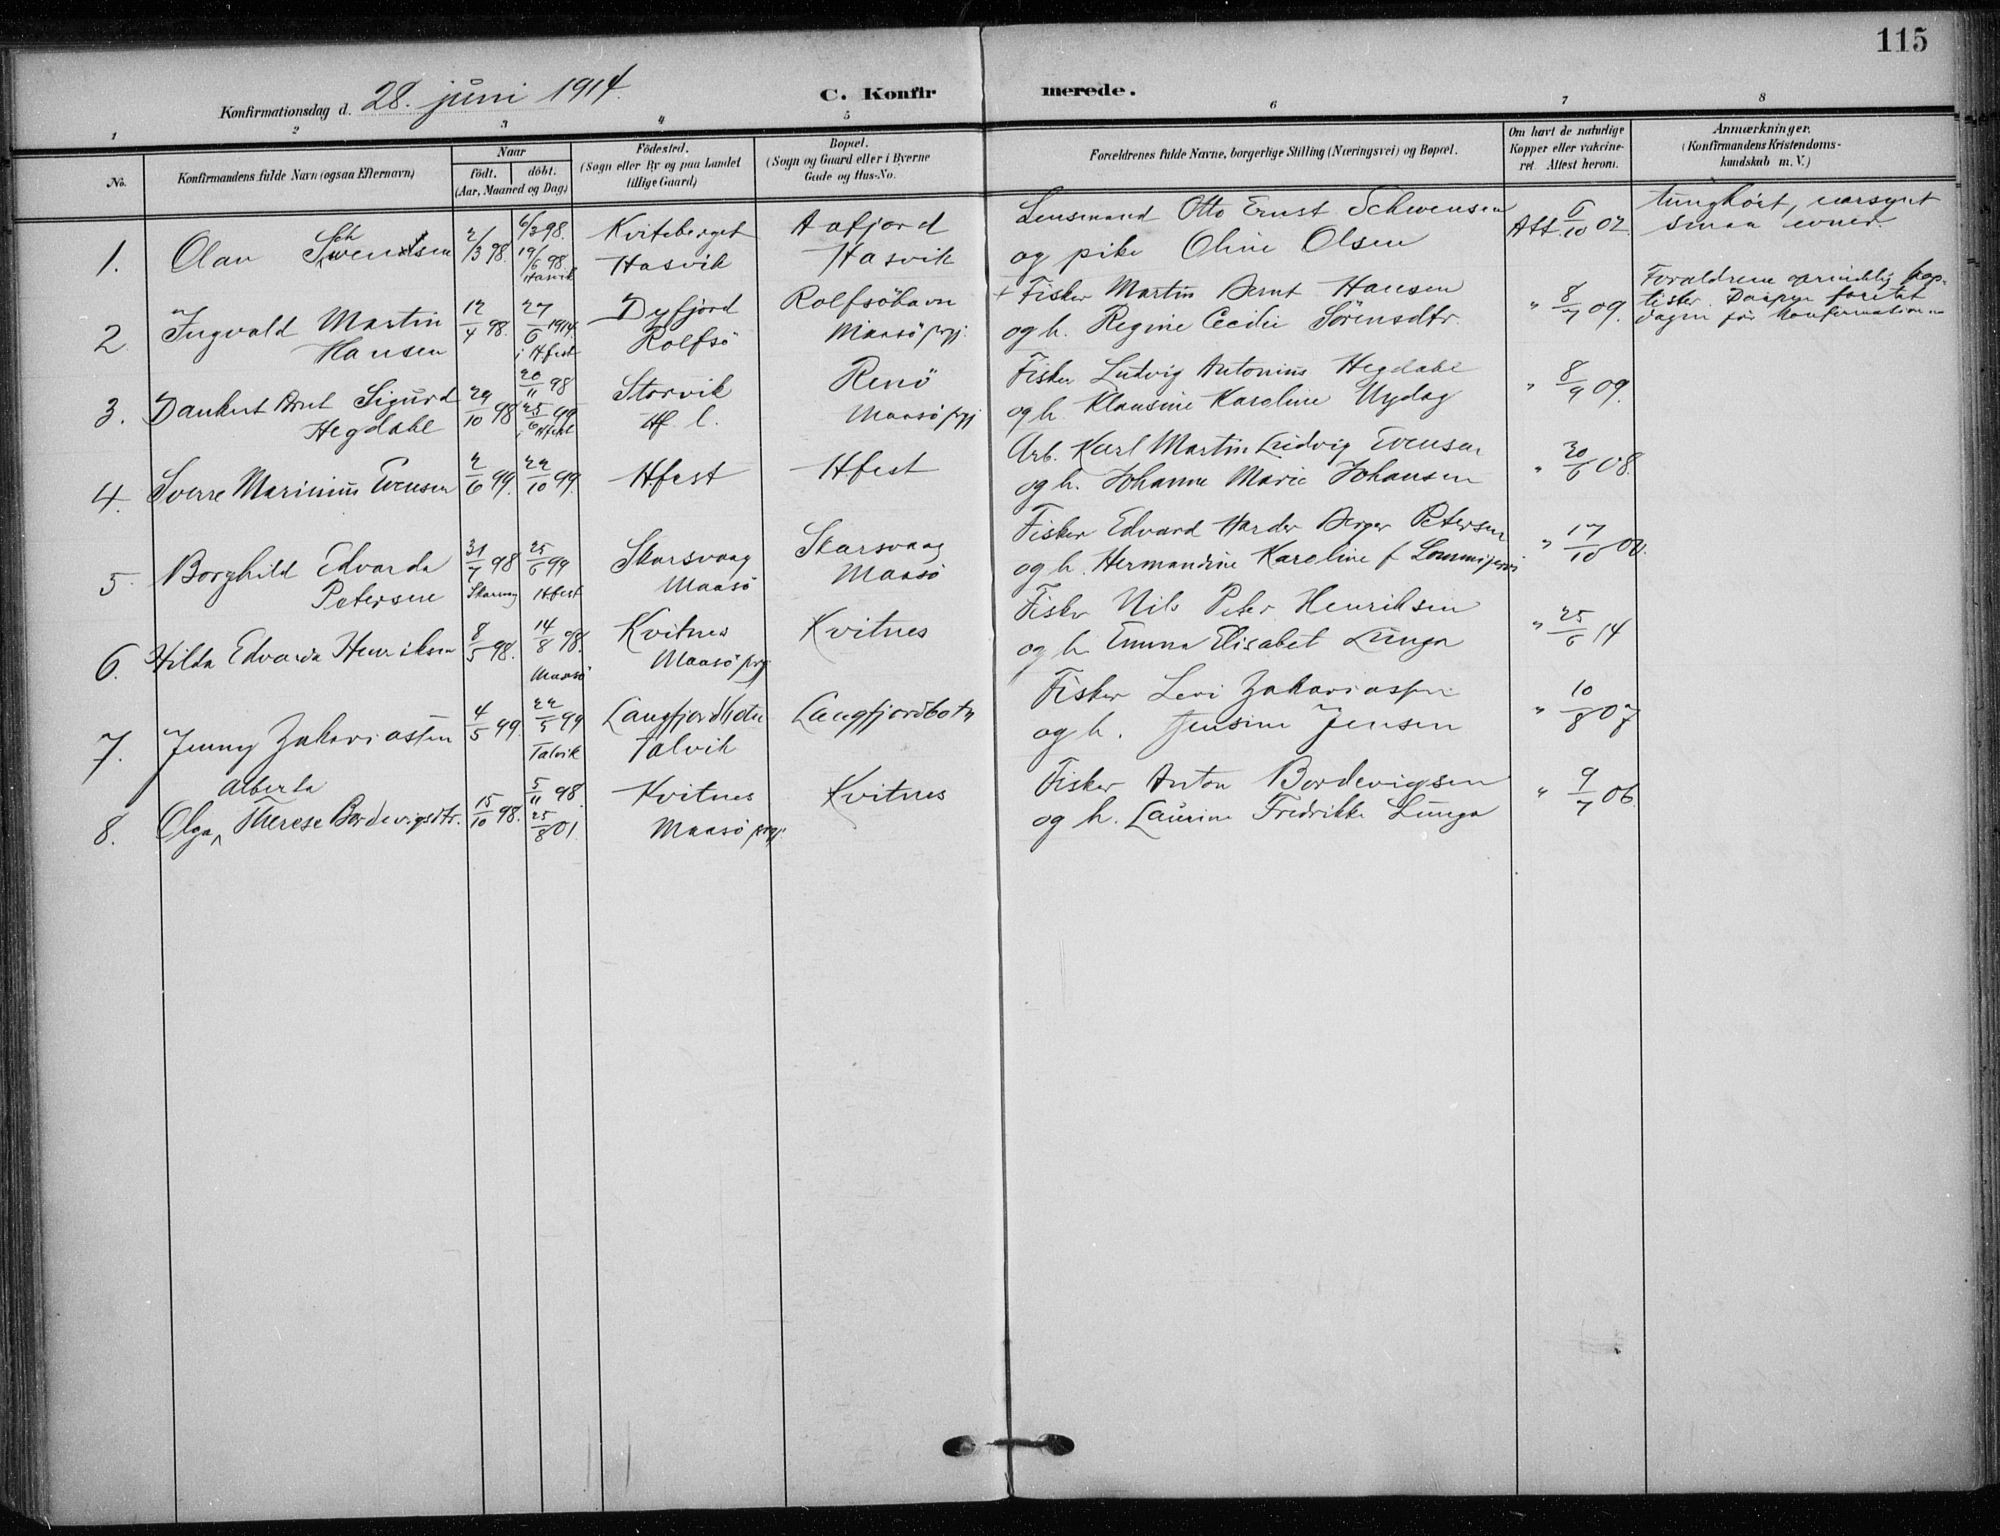 115
Konfirmationsdag d. 28. juni 1914.
C. Konfirmerede.
1 2 3 4 5 6 7 8
No.
Konfirmandens fulde Navn (ogsaa Efternavn)
Naar
født. døbt.
(Aar, Maaned og Dag)
Fødested.
(Sogn eller By og paa Landet
tillige Gaard)
Bopæl.
(Sogn og Gaard eller i Byerne
Gade og Hus-No.
Forældrenes fulde Navne, borgerlige Stilling (Næringsvei) og Bopæl.
Om havt de naturlige
Kopper eller vakcine-
ret. Attest herom.
Anmærkninger.
(Konfirmandens Kristendoms-
kundskab m. V.)
1. Olav Schwensen 2/3 98. 6/3 98. Kviteberget Aafjord Lensmand Otto Ernst Schwensen Att 6/10 02. tunghørt, nærsynt
19/6 98. Hasvik Hasvik Hasvik og pike Oline Olsen smaa evner.
2. Ingvald Martin 12/4 98. 27/6 1914. Dyfjord Rolfsöhavn + Fisker Martin Bernt Hansen " 8/7 09. Forældrene oprindelig bap-
Hansen i Hfest Rolfsö Maasö prgj. og h. Regine Cecilie Sörensdtr. tister. Daapen foretat
dagen før konfirmationen
3. Dankert Arnt Sigurd 29/10 98 20/11 98 Storvik Renö Fisker Ludvig Antonius Hegdahl " 8/9 09.
Hegdahl 25/6 99 i Hfest Hf. l. Maasö prgj og h. Klausine Karoline Nydag
4. Sverre Marinius Evensen 2/6 99. 22/10 99. Hfest Hfest Arb. Karl Martin Ludvig Evensen " 30/6 08.
og h. Johanne Marie Johansen
5. Borghild Edvarda 31/7 98 25/6 99 Skarsvaag Skarsvaag Fisker Edvard Harder Berger Petersen " 17/10 00.
Petersen Skarsvag Hfest Maasö Maasö og h. Hermandine Karoline f.
6. Hilda Edvarda Henriksen 8/5 98. 14/8 98. Kvitnes Kvitnes Fisker Nils Peter Henriksen " 25/6 14
Maasö Maasö prgj og h. Emma Elisabet Lunga
7. Jenny Zakariassen 4/5 99. 22/5 99 Langfjordbotn Langfjordbotn Fisker Levi Zakariassen " 10/8 07
Talvik Talvik og h. Jensine Jensen
Alberta
8. Olga Therese Bordevigsdtr. 15/10 98. 5/11 98. Kvitnes Kvitnes Fisker Anton Bordevigsen " 9/7 06.
25/8 01. Maasö prgj. og h. Laurine Fredrikke Lunga